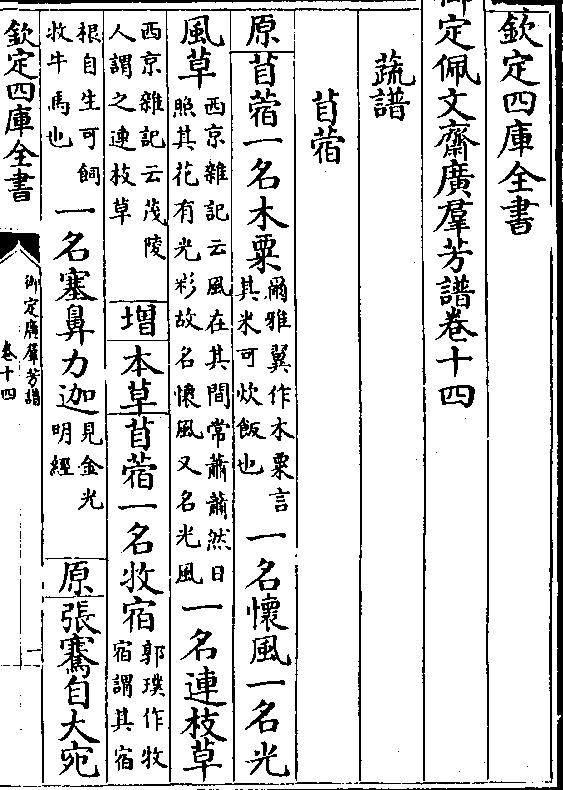 欽定四庫全書
御定佩文齋廣羣芳譜卷十四
蔬譜
苜蓿
原苜蓿一名木粟爾雅翼作木粟言其米可炊飯也一名懷風一名光
風草西京雜記云風在其間常蕭蕭然日照其花有光彩故名懷風又名光風一名連枝草
西京雜記云茂陵人謂之連枝草增本草苜蓿一名牧宿郭璞作牧宿謂其宿
根自生可飼牧牛馬也一名塞鼻力迦見金光明經原張騫自大宛
欽定四庫全書
御定廣羣芳譜
卷十四
一